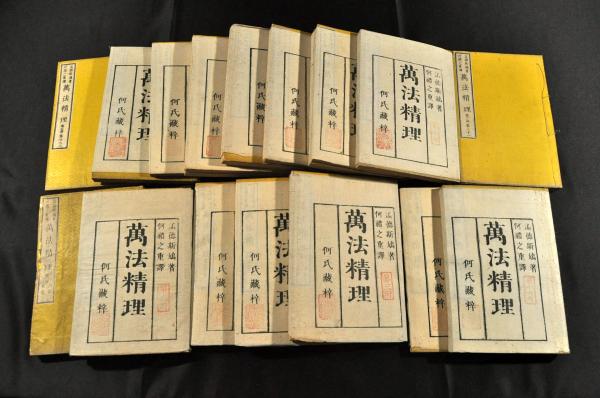 萬法精理
萬法精理
何氏藏梓
何氏藏梓
何氏藏梓
何氏藏梓
何氏藏梓
何氏藏梓
孟德斯鳩著
何禮之重譯
萬法精理
何氏藏梓
萬法精理
萬法精理
孟德斯鳩著
何禮之重譯
萬法精理
何氏藏梓
何氏藏梓
萬法精理
何氏藏梓
孟德斯鳩著
何禮之重譯
萬法精理
何氏藏梓
何氏藏梓
孟德斯鳩著
何禮之重譯
萬法精理
何氏藏梓